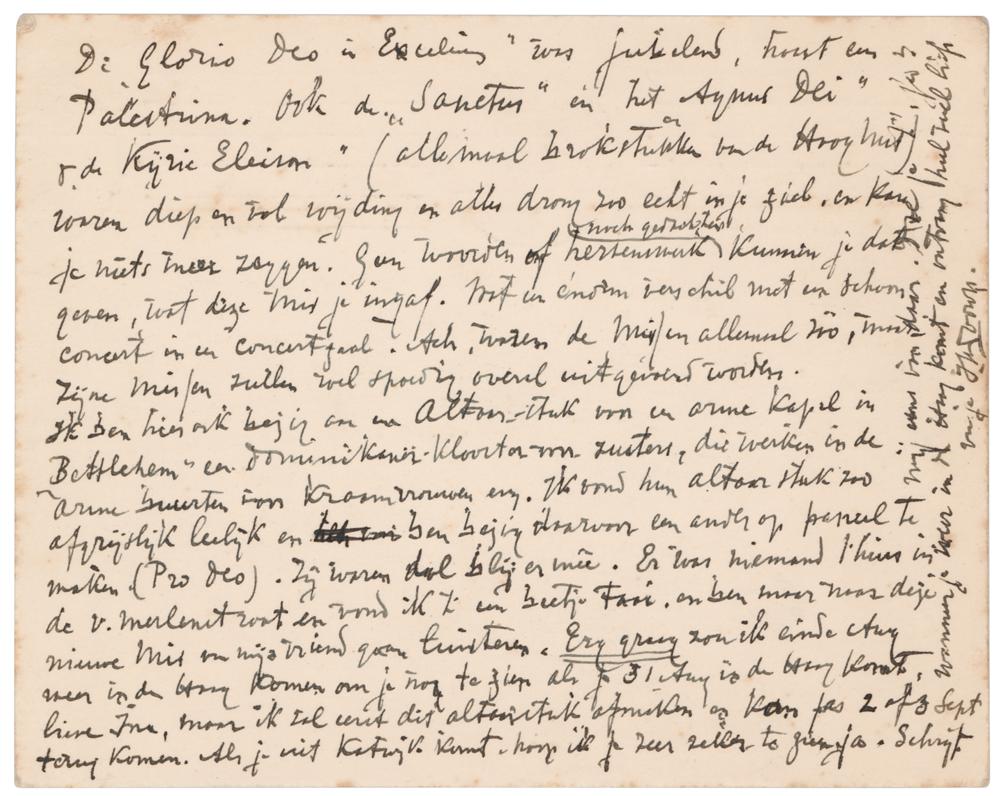 De Gloria Deo in Excelsius" was jubelend, haast een
Palestrina. Ook de "Sanctus" en het Agnus Dei"
& de Kyrie Eleison" (allemaal brokstukken van de Hoog Mis)
waren diep en vol wijding en alles drong zoo echt in je ziel. en kan
je niets meer zeggen. Geen woorden of hersenwerk kunnen je dat
noch gedachten
geven, wat deze Mis je ingaf. Wat een énorm verschil met een schoon
concert in een concertzaal. Ach, waren de Missen allemaal zoo, maar
Zijne Missen zullen wel spoedig overal uitgevoerd worden.
Ik ben hier ook bezig aan een Altaar-stuk voor een arme kapel in
Bethlehem" een Dominikaner-Klooster voor zusters, die werken in de
arme buurten voor Kraamvrouwen enz. Ik vond hun altaarstuk zoo
afgrijslijk leelijk en ben bezig daarvoor een ander op paneel te
maken (Pro Deo). Zij waren dol blij er mée. Er was niemand thuis in
de v. Merlenstraat en vond ik 't een beetje taai. en ben maar naar deze
nieuwe Mis van mijn vriend gaan luisteren. Erg graag zou ik einde Aug
weer in den Haag komen om je nog te zien als je 31 Aug in de Haag komt,
lieve Ina, maar ik zal eerst dit altaarstuk afmaken en kan pas 2 of 3 Sept
terug komen. Als je uit Katwijk komt hoop ik je zeer zeker te zien ja. Schrijf
mij eens van daar.
wanneer je weer in de Haag komt en ontvang heel veel liefs
van je Jhr. Toorop.